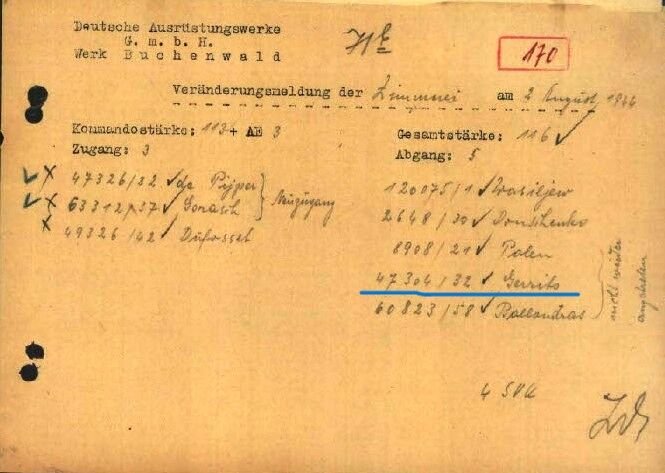 Deutsche Ausrüstungswerke
G. m. b. H.
Werk Buchenwald
170
Veränderungsmeldung der Zimmerei am 2 August 1944
Kommandostärke: 113 + AE 3
Gesamtstärke: 116 ✓
Zugang: 3
Abgang: 5
✓ x 47326/32 ✓ de Pijper
✓ x 63312/37 ✓ Gonasch } Neuzugang
x 49326/42 ✓ Dufosset
120075/1 ✓ Wasiljew
2648/30 ✓ Donschenko
8908/21 ✓ Polen
47304/32 ✓ Gerrits
60823/58 ✓ Ballandras
nicht wieder
angetreten
4